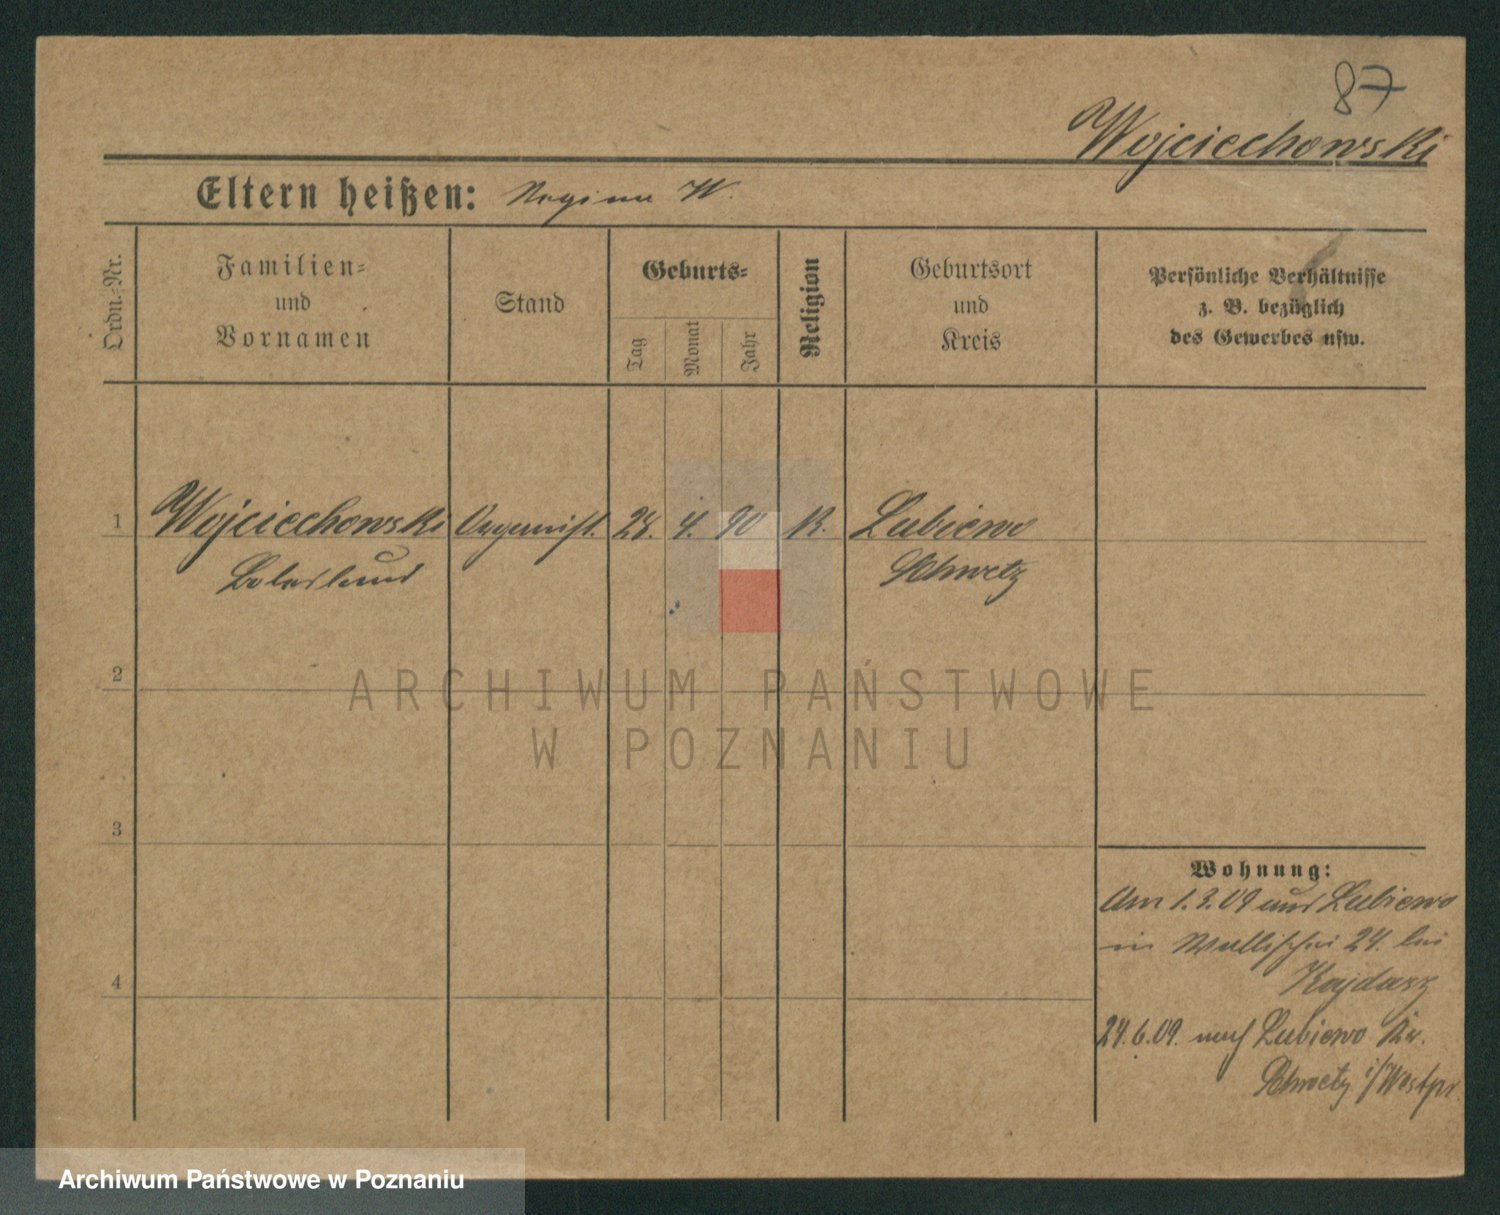 87
Wojciechowski
Eltern heißen: Regina W.
Ordn.-Nr.
Familien-
und
Vornamen
Stand
Geburts-
Tag
Monat
Jahr
Religion
Geburtsort
und
Kreis
Persönliche Verhältnisse
z. B. bezüglich
des Gewerbes usw.
1 Wojciechowski Organist. 28. 4. 90 K. Lubiewo
Boleslaus Schwetz
2
3
4
Wohnung:
Am 1.3.09 aus Lubiewo
in Wallischei 24. bei
Kajdasz
24.6.09. nach Lubiewo Kr.
Schwetz i/Westpr.
ARCHIWUM PAŃSTWOWE
W POZNANIU
Archiwum Państwowe w Poznaniu